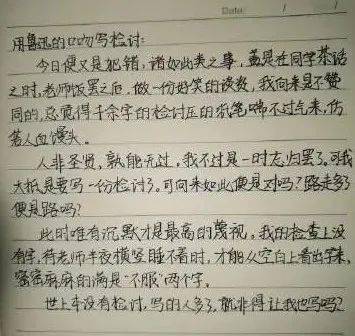 Date: / /
用鲁迅的口吻写检讨:
今日便又是犯错,诸如此类之事,盖是在同学茶话
之时,老师饭罢之后,做一份好笑的谈资,我向来是不赞
同的,总觉得千余字的检讨压的纸笔喘不过气来,仿
若人血馒头。
人非圣贤,孰能无过,我不过是一时忘归罢了。可我
大抵是要写一份检讨了。可向来如此便是对吗?路走多了
便是路吗?
此时唯有沉默才是最高的蔑视,我的检查上没
有字,待老师半夜横竖睡不着时,才能从空白上看出字来,
密密麻麻的满是"不服"两个字。
世上本没有检讨,写的人多了,就非得让我也写吗?